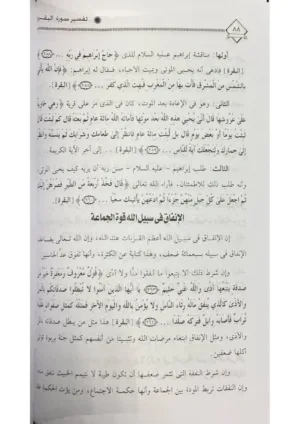 ٨٨ تفسير سورة البقرة
أولها: مناقشة إبراهيم عليه السلام للذى ﴿حَاجَّ إِبْرَاهِيمَ فِي رَبِّهِ ... (٢٥٨)﴾
[البقرة] فادعى أنه يحيى الموتى ويميت الأحياء، فقال له إبراهيم: ﴿فَإِنَّ اللَّهَ يَأْتِي
بِالشَّمْسِ مِنَ الْمَشْرِقِ فَأْتِ بِهَا مِنَ الْمَغْرِبِ فَبُهِتَ الَّذِي كَفَرَ ... (٢٥٨)﴾ [البقرة].
الثانى: وهو فى الإعادة بعد الموت، كان فى الذى مر على قرية ﴿وَهِيَ خَاوِيَةٌ
عَلَىٰ عُرُوشِهَا قَالَ أَنَّىٰ يُحْيِي هَٰذِهِ اللَّهُ بَعْدَ مَوْتِهَا فَأَمَاتَهُ اللَّهُ مِائَةَ عَامٍ ثُمَّ بَعَثَهُ قَالَ كَمْ لَبِثْتَ قَالَ
لَبِثْتُ يَوْمًا أَوْ بَعْضَ يَوْمٍ قَالَ بَل لَّبِثْتَ مِائَةَ عَامٍ فَانظُرْ إِلَىٰ طَعَامِكَ وَشَرَابِكَ لَمْ يَتَسَنَّهْ وَانظُرْ
إِلَىٰ حِمَارِكَ وَلِنَجْعَلَكَ آيَةً لِّلنَّاسِ ... (٢٥٩)﴾ [البقرة] ... إلى آخر الآية الكريمة
الثالث: طلب إبراهيم - عليه السلام - من ربه أن يريه كيف يحيى الموتى،
وأنه طلب ذلك للاطمئنان، فأراه الله تعالى ﴿قَالَ فَخُذْ أَرْبَعَةً مِّنَ الطَّيْرِ فَصُرْهُنَّ إِلَيْكَ
ثُمَّ اجْعَلْ عَلَىٰ كُلِّ جَبَلٍ مِّنْهُنَّ جُزْءًا ثُمَّ ادْعُهُنَّ يَأْتِينَكَ سَعْيًا ... (٢٦٠)﴾ [البقرة].
الإنفاق فى سبيل الله قوة الجماعة
إن الإنفاق فى سبيل الله أعظم القربات عند الله، وإن الله تعالى يضاعف
الإنفاق فى سبيله سبعمائة ضعف، وهذا كناية عن الكثرة، وأنها تفوق عد الحاسبين
وإن شرط ذلك ألا يتبعوا ما أنفقوا منًّا ولا أذى ﴿قَوْلٌ مَّعْرُوفٌ وَمَغْفِرَةٌ خَيْرٌ مِّن
صَدَقَةٍ يَتْبَعُهَا أَذًى وَاللَّهُ غَنِيٌّ حَلِيمٌ (٢٦٣) يَا أَيُّهَا الَّذِينَ آمَنُوا لَا تُبْطِلُوا صَدَقَاتِكُم بِالْمَنِّ
وَالْأَذَىٰ كَالَّذِي يُنفِقُ مَالَهُ رِئَاءَ النَّاسِ وَلَا يُؤْمِنُ بِاللَّهِ وَالْيَوْمِ الْآخِرِ فَمَثَلُهُ كَمَثَلِ صَفْوَانٍ عَلَيْهِ
تُرَابٌ فَأَصَابَهُ وَابِلٌ فَتَرَكَهُ صَلْدًا ... (٢٦٤)﴾ [البقرة] هذا مثل من يبطل صدقاته بالمن
والأذى، ومثل الإنفاق ابتغاء مرضات الله وتثبيتا من أنفسهم كمثل جنة بربوة تؤتى
أكلها ضعفين.
وإن شرط النفقة التى تثمر ضعفها أن تكون طيبة لا تتيمم الخبيث تنفق منه
وإن النفقات تربط المودة بين الجماعة وأنها حكمة الاجتماع، ومن يؤت الحكمة فقد